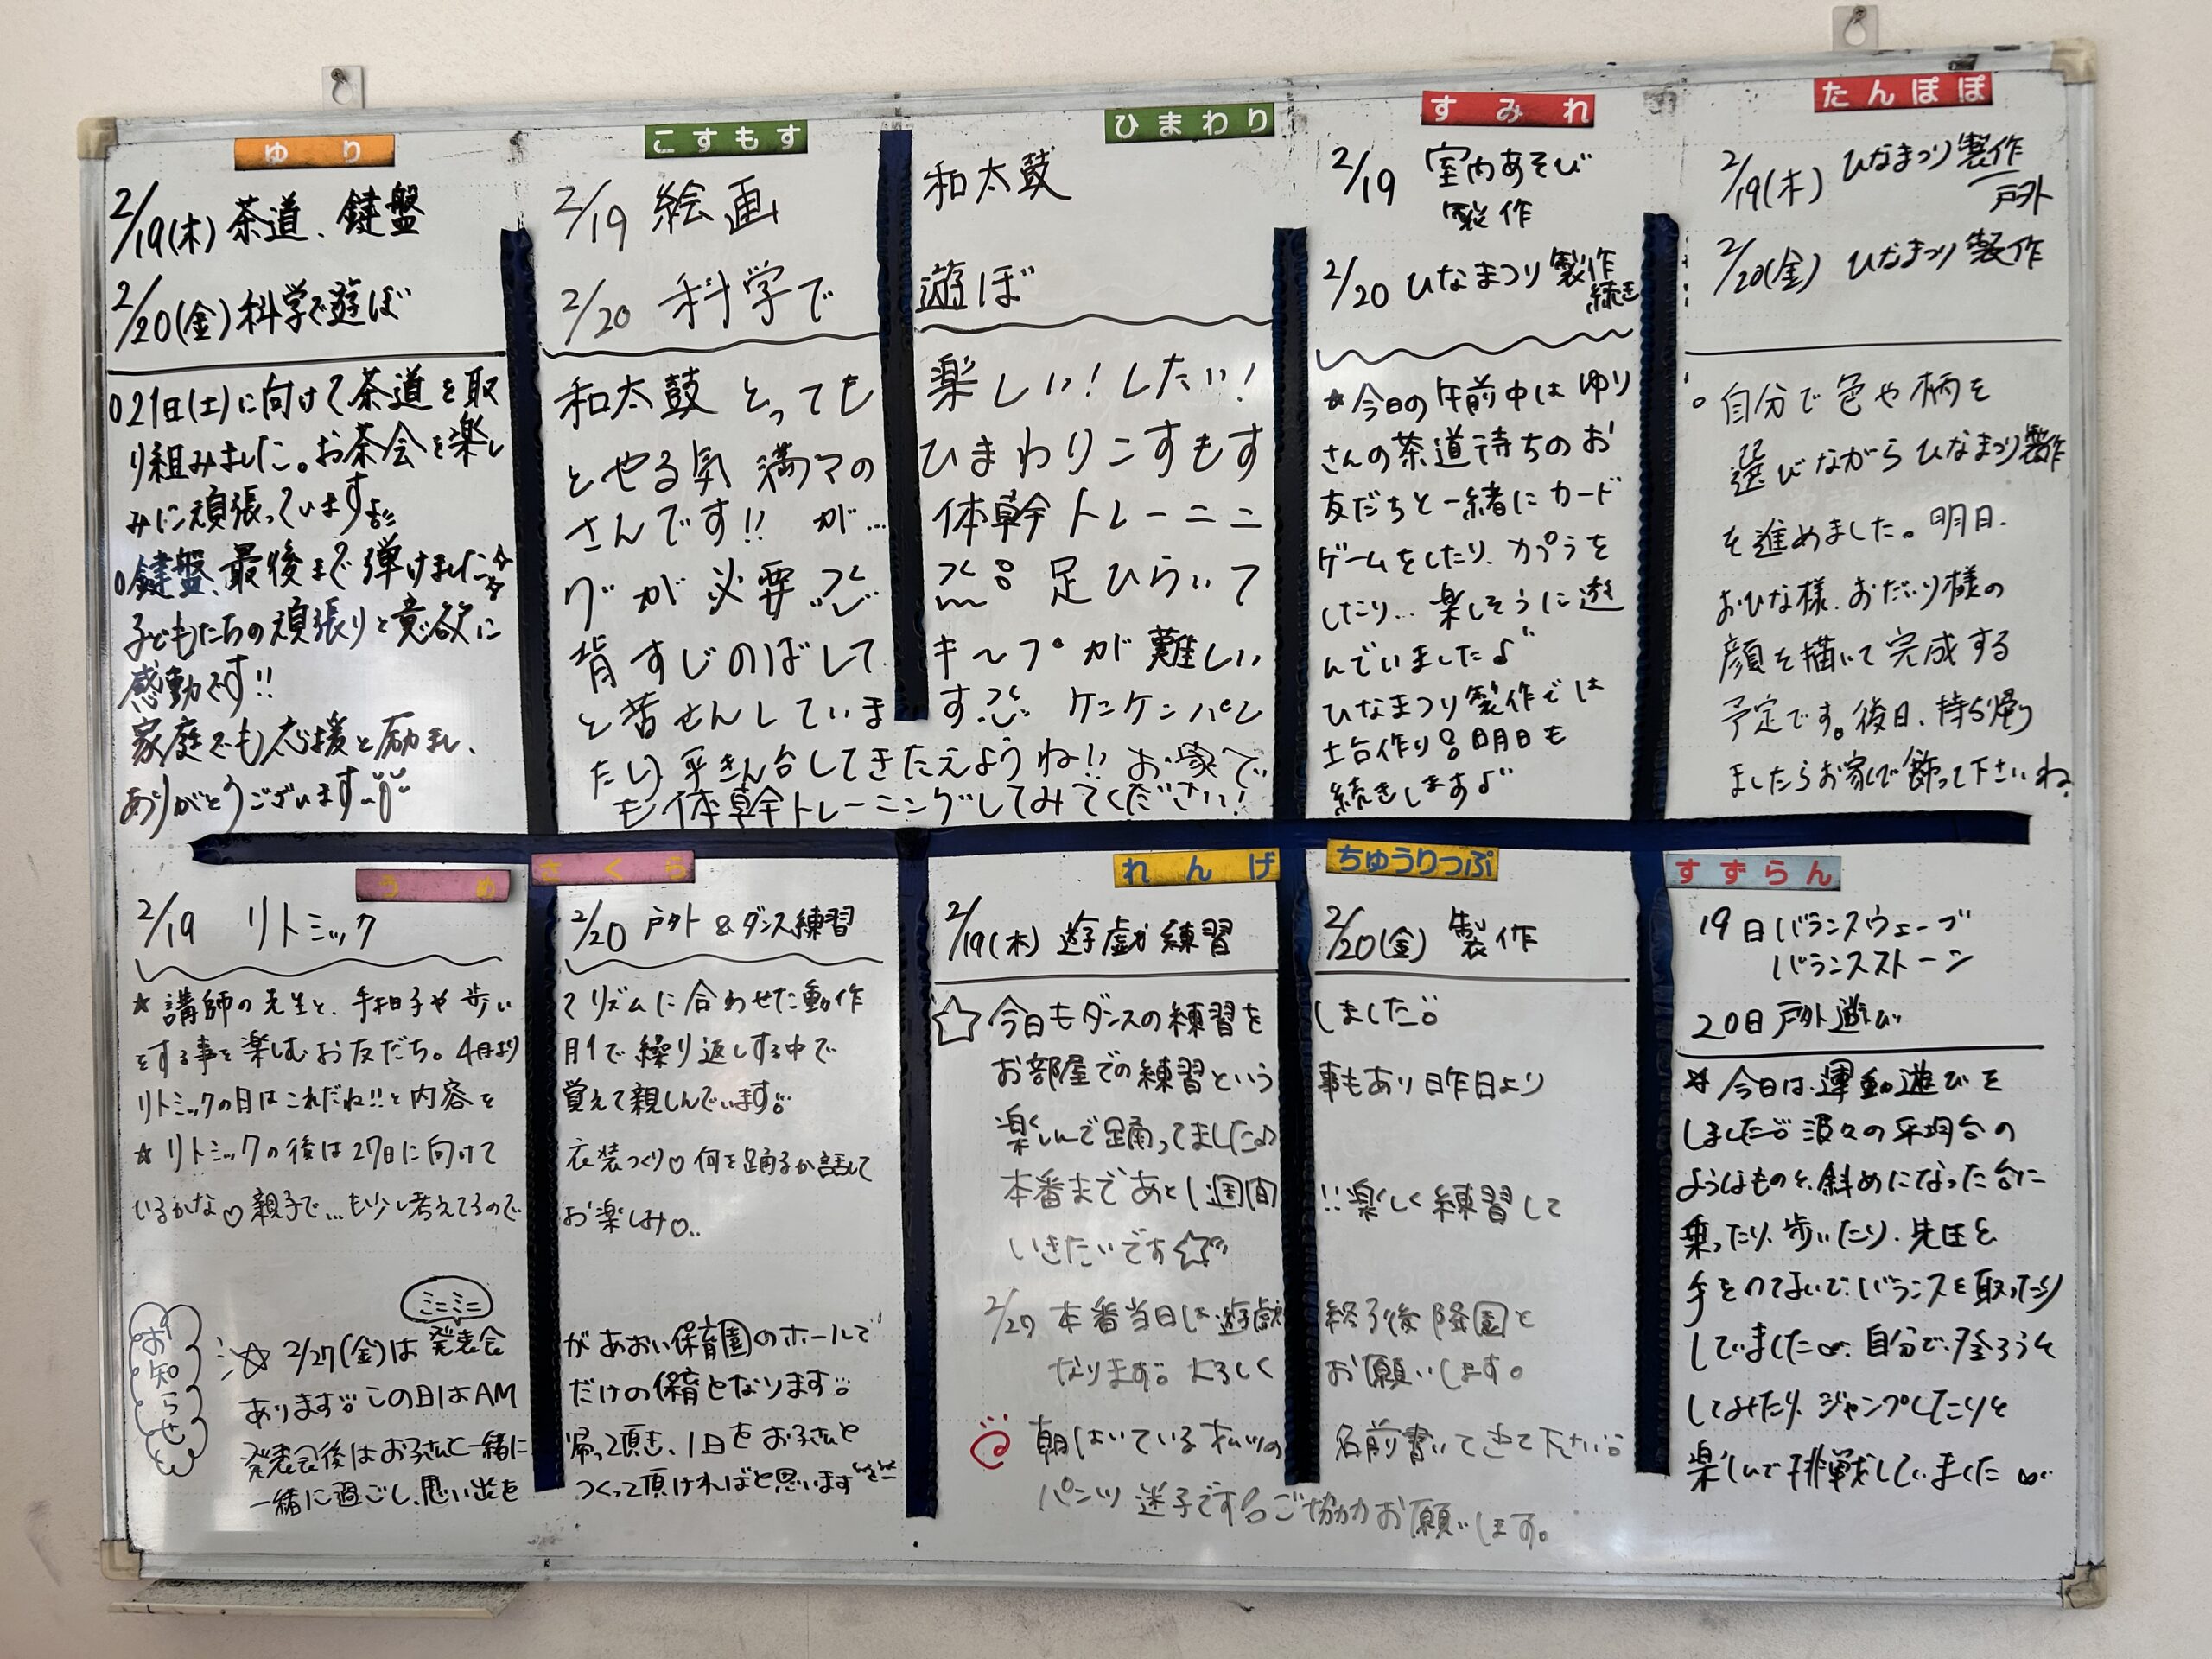 ゆり
2/19(木) 茶道、鍵盤
2/20(金) 科学で遊ぼ
○21日(土)に向けて茶道を取
り組みました。お茶会を楽し
みに頑張っています
○鍵盤、最後まで弾けました☆
子どもたちの頑張りと意欲に
感動です!!
家庭でも応援と励まし、
ありがとうございます
こすもす ひまわり
2/19 絵画 和太鼓
2/20 科学で 遊ぼ
和太鼓 とっても 楽しい!したい!
とやる気満々の ひまわりこすもす
さんです!! が… 体幹トレーニン
グが必要 足ひらいて
背すじのばして キープが難しい
と苦せんしています ケンケンパし
たり平きん台してきたえようね!! お家で
も体幹トレーニングしてみてください!
すみれ
2/19 室内あそび
製作
2/20 ひなまつり製作
続き
☆今日の午前中はゆり
さんの茶道待ちのお
友だちと一緒にカード
ゲームをしたり、カプラを
したり… 楽しそうに遊
んでいました♪
ひなまつり製作では
土台作り 明日も
続きします♪
たんぽぽ
2/19(木) ひなまつり製作
戸外
2/20(金) ひなまつり製作
○自分で色や柄を
選びながらひなまつり製作
を進めました。明日、
おひな様、おだいり様の
顔を描いて完成する
予定です。後日、持ち帰り
ましたらお家で飾って下さいね。
うめ さくら
2/19 リトミック 2/20 戸外&ダンス練習
☆講師の先生と、手拍子や歩い てリズムに合わせた動作
をする事を楽しむお友だち。4月より 月1で繰り返しする中で
リトミックの日はこれだね!!と内容を 覚えて親しんでいます
☆リトミックの後は27日に向けて 衣装つくり♡何を踊るか話して
いるかな♡親子で…もう少し考えてるので お楽しみ♡
お知らせ
ミニミニ
☆2/27(金)は発表会 があおい保育園のホールで
あります。この日はAM だけの保育となります
発表会後はお子さんと一緒に 帰って頂き、1日をお子さんと
一緒に過ごし、思い出を つくって頂ければと思います
れんげ ちゅうりっぷ
2/19(木) 遊戯練習 2/20(金) 製作
☆今日もダンスの練習を しました
お部屋での練習という 事もあり昨日より
楽しんで踊ってました♪
本番まであと1週間 !!楽しく練習して
いきたいです☆
2/27 本番当日は遊戯 終了後降園と
なります。よろしく お願いします。
朝はいている パンツの 名前書いて 下さい
パンツ迷子です ご協力お願いします。
すずらん
19日 バランスウェーブ
バランスストーン
20日 戸外遊び
☆今日は運動遊びを
しました 波々の平均台の
ようなものや、斜めになった台に
乗ったり、歩いたり、先生と
手をつないでバランスを取ったり
していました 自分で登ろうと
してみたり、ジャンプしたりと
楽しんで挑戦していました